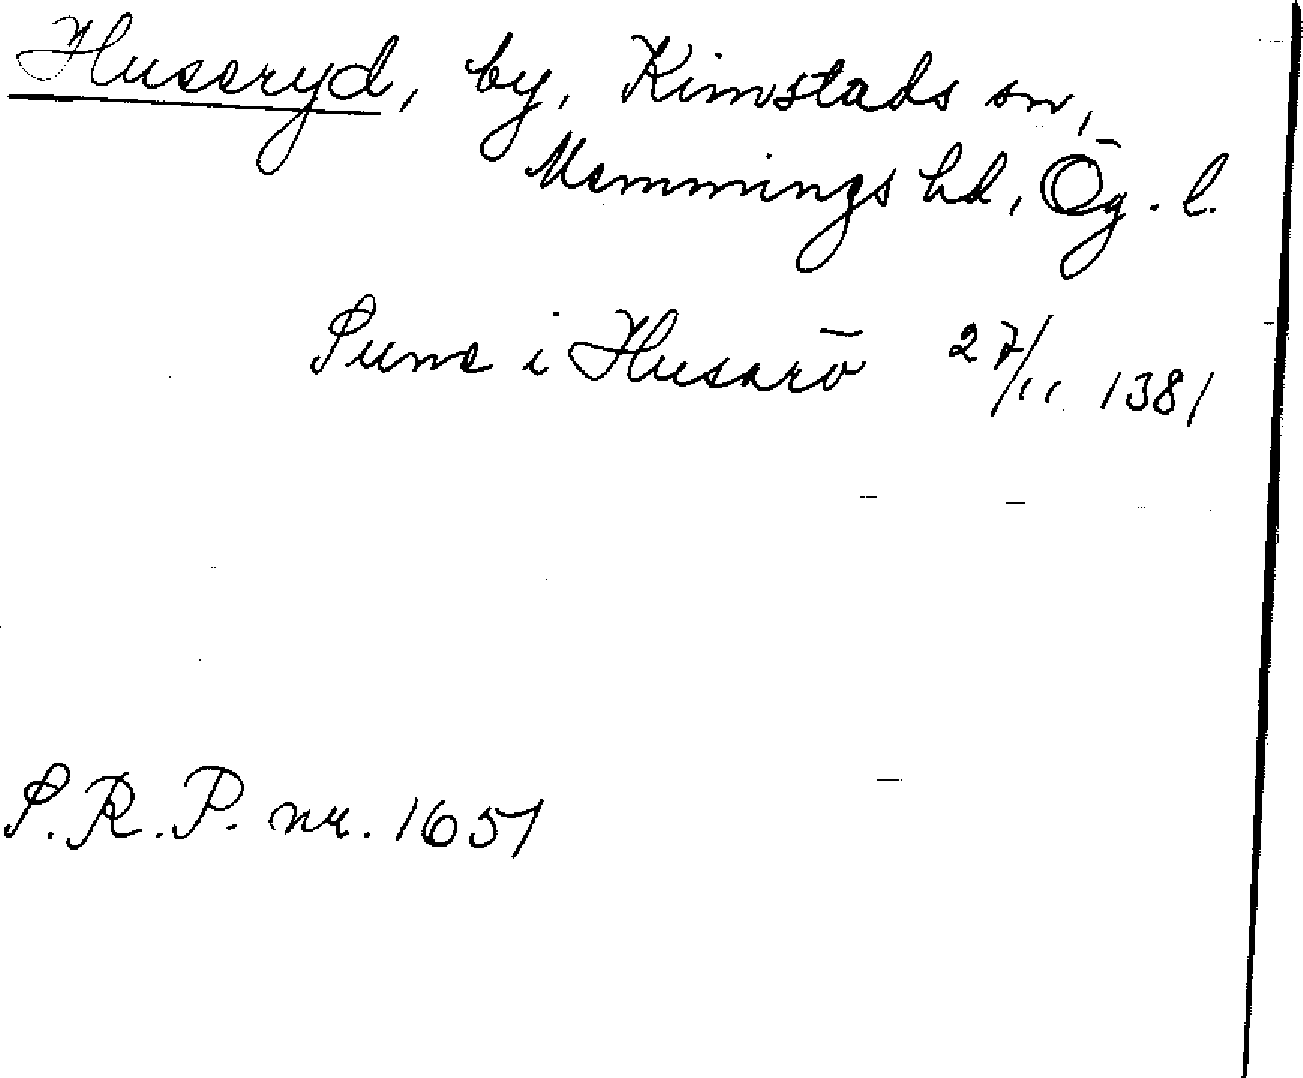 Husaryd, by, Kimstads sn,
Memmings hd, Ög. l.
Sune i Husarö 27/11 1381
S.R.P. nr. 1651